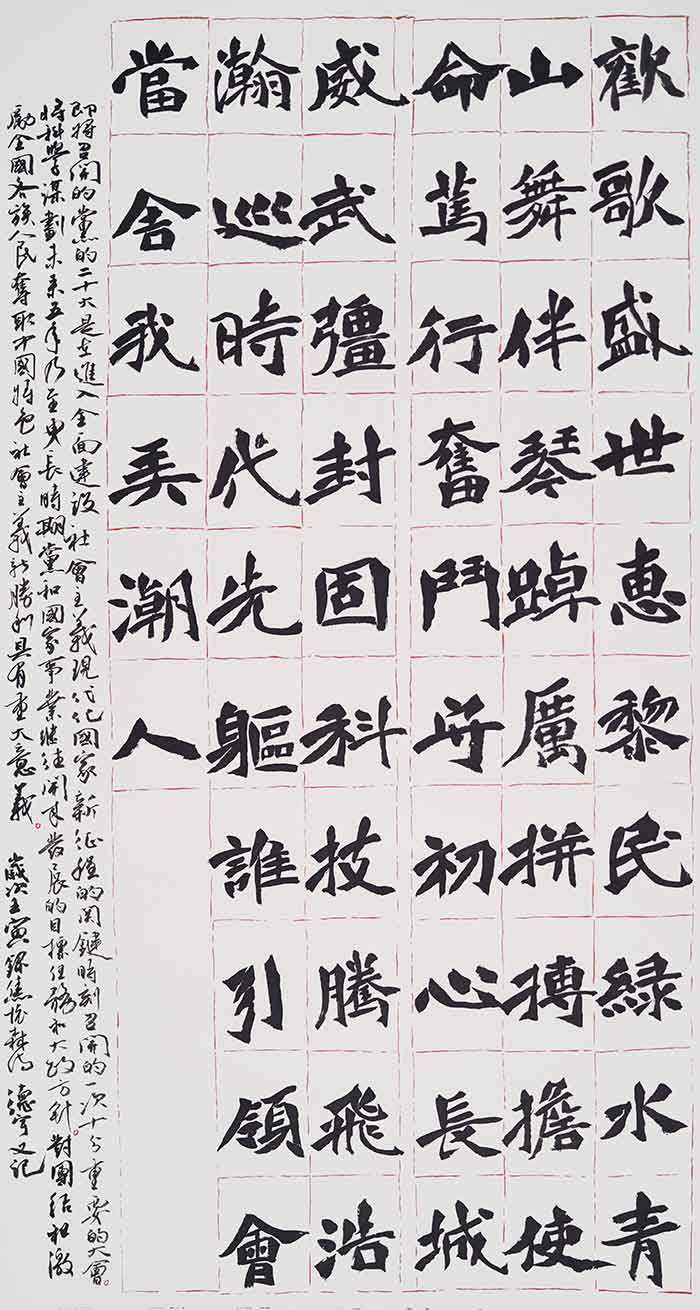 歡歌盛世恵黎民緑水青
山舞伴琴踔厲拼搏擔使
命篤行奮鬥守初心長城
威武彊封固科技騰飛浩
瀚巡時代先軀誰引領會
當舍我弄潮人
即將召開的黨的二十大是在進入全面建設社會主義現代化國家新征程的関鍵時刻召開的一次十分重要的大會。
將科學謀劃未來五年乃至更長時期黨和國家事業继往開来發展的目標任務和大政方針。對團結和激
勵全國各族人民奪取中國特色社會主義新勝利具有重大意義。歲次壬寅錄焦森詩 德宇又記